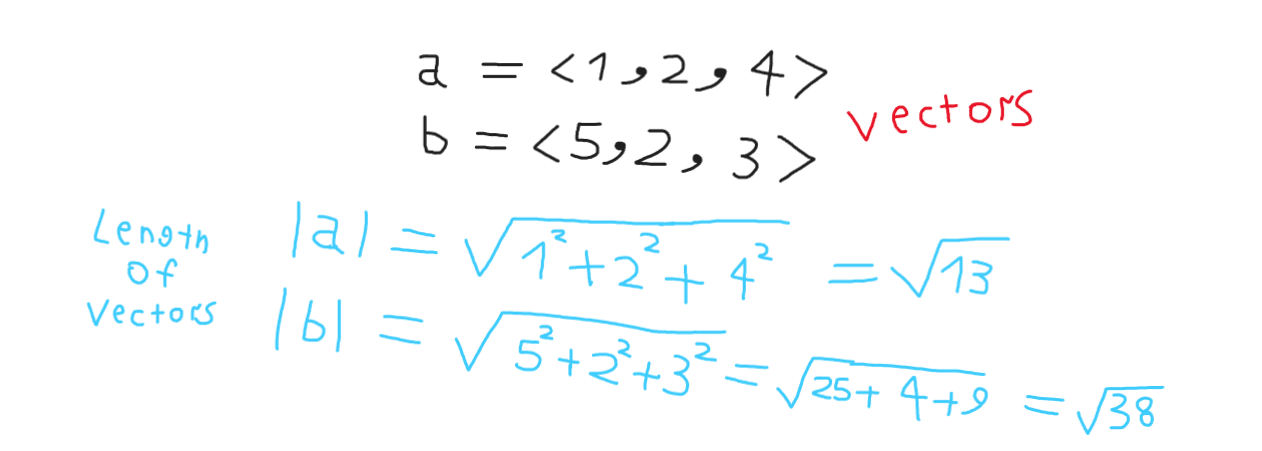 a = <1, 2, 4>
b = <5, 2, 3>
vectors
Length
Of
Vectors
|a| = √(1² + 2² + 4²) = √13
|b| = √(5² + 2² + 3²) = √(25 + 4 + 9) = √38